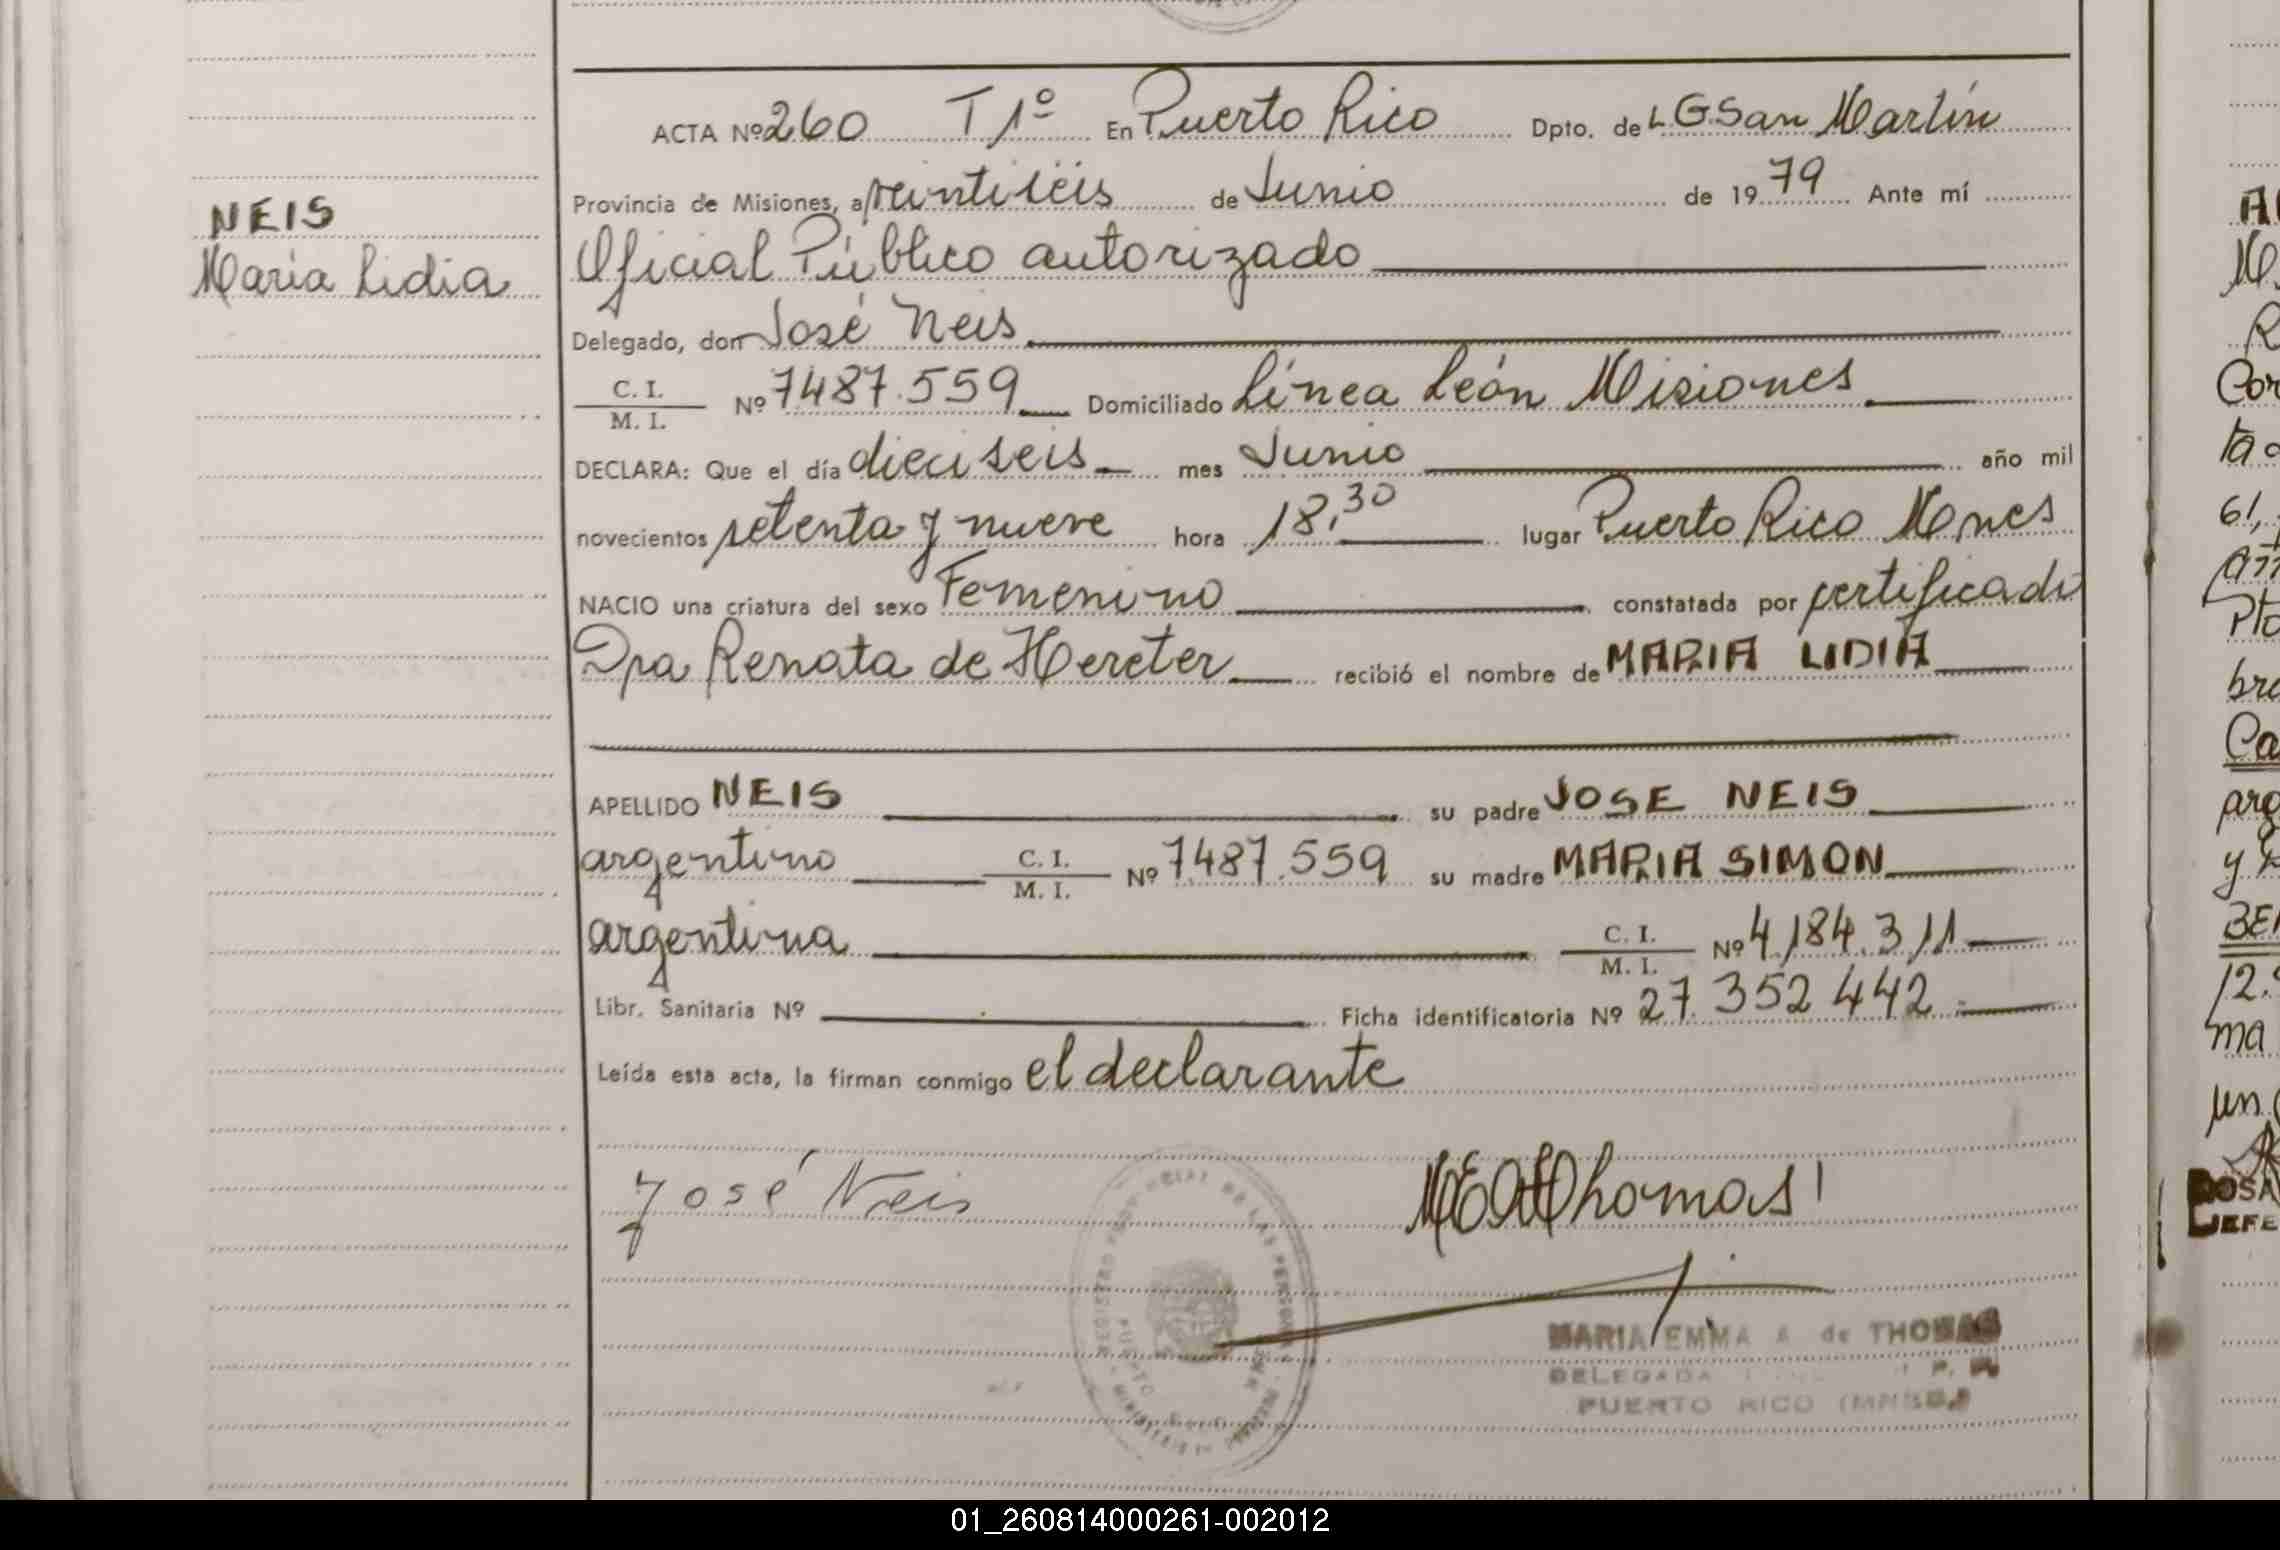 ACTA Nº 260 T 1º En Puerto Rico Dpto. de L.G.San Martín
Provincia de Misiones, a veintiséis de Junio de 1979 Ante mí
NEIS
María Lidia
Oficial Público autorizado
Delegado, don José Neis
C. I.
M. I.
Nº 7487.559 Domiciliado Línea León Misiones
DECLARA: Que el día dieciseis mes Junio año mil
novecientos setenta y nueve hora 18,30 lugar Puerto Rico Mnes
NACIO una criatura del sexo Femenino constatada por certificado
Dra Renata de Hereter recibió el nombre de MARIA LIDIA
APELLIDO NEIS su padre JOSE NEIS
argentino C. I. M. I. Nº 7487.559 su madre MARIA SIMON
argentina C. I. M. I. Nº 4.184.311
Libr. Sanitaria Nº Ficha identificatoria Nº 27.352.442
Leída esta acta, la firman conmigo el declarante
José Neis
MARIA EMMA A. de THOMAS
DELEGADA
PUERTO RICO (MNES.)
01_260814000261-002012